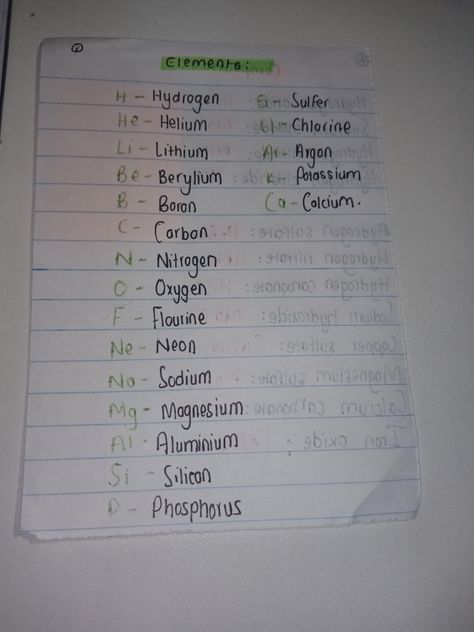 ①
Elements:
H - Hydrogen
He - Helium
Li - Lithium
Be - Berylium
B - Boron
C - Carbon
N - Nitrogen
O - Oxygen
F - Flourine
Ne - Neon
Na - Sodium
Mg - Magnesium
Al - Aluminium
Si - Silicon
P - Phosphorus
S - Sulfer
Cl - Chlorine
Ar - Argon
K - Potassium
Ca - Calcium.